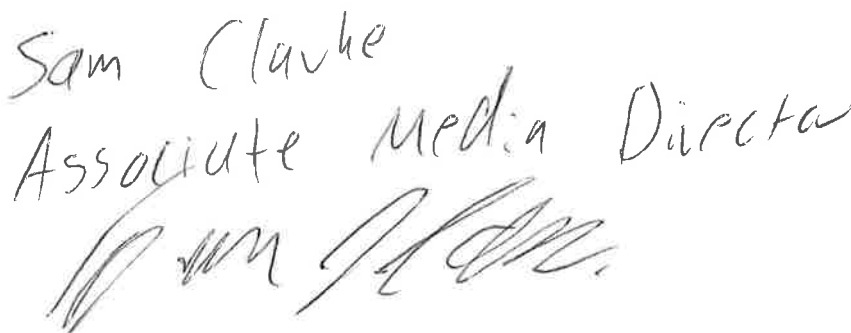 Sam Clarke
Associate Media Director